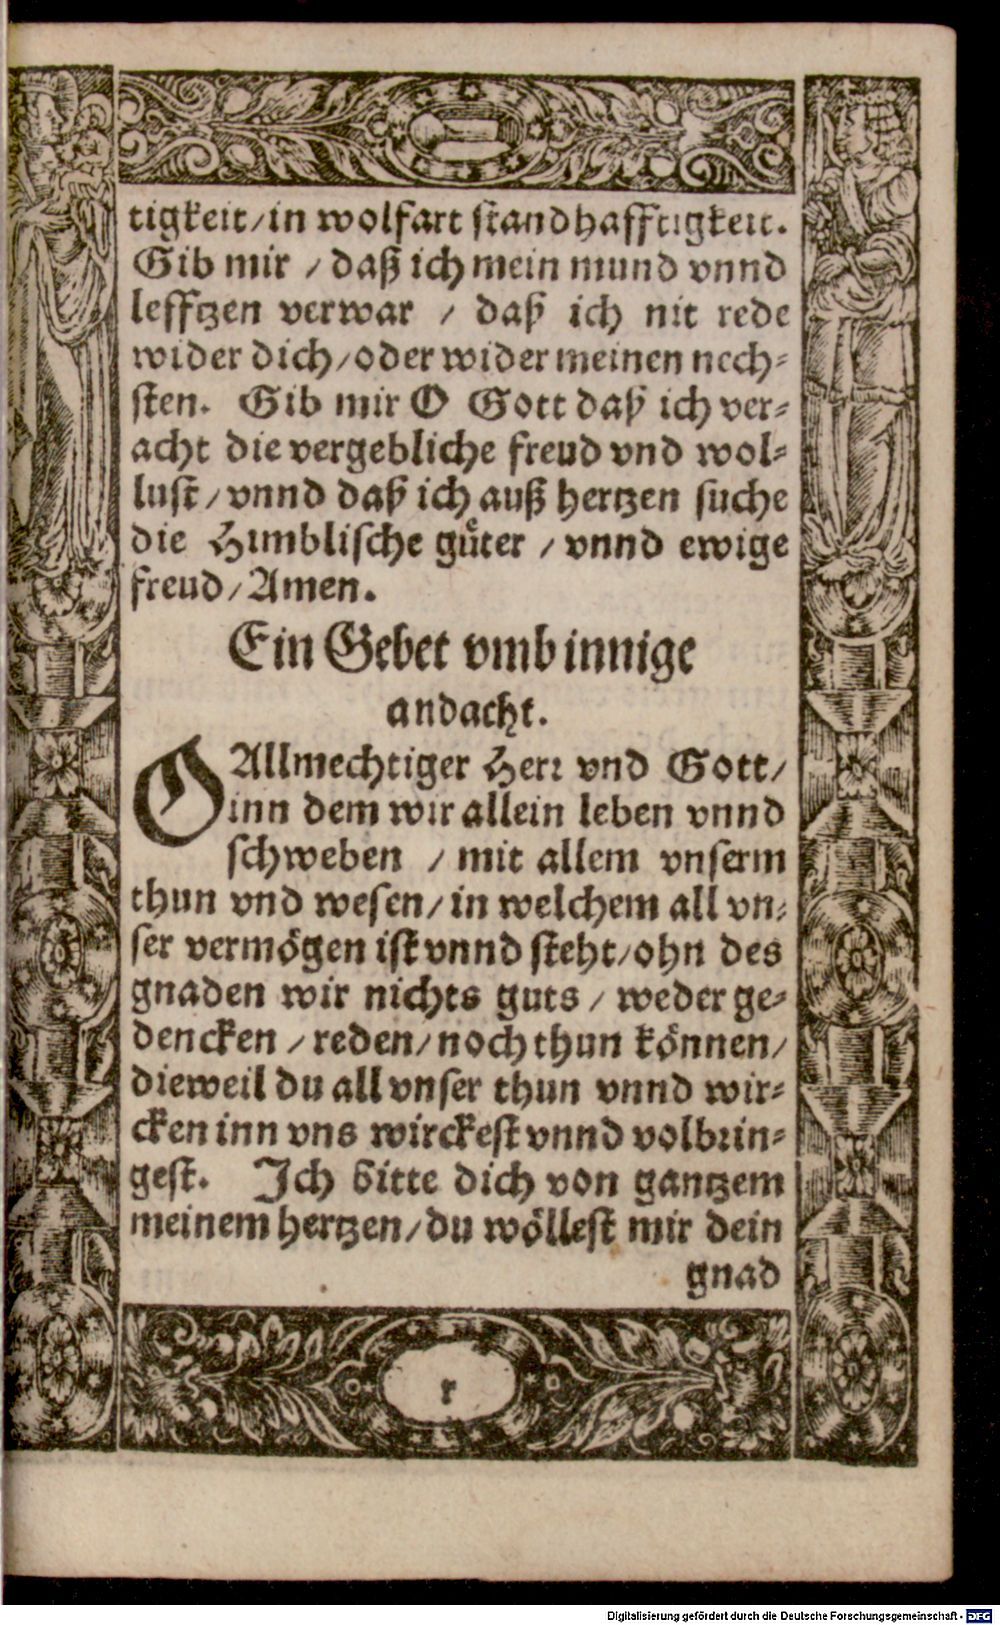 tigkeit/in wolfart standhafftigkeit.
Gib mir / daß ich mein mund vnnd
lefftzen verwar / daß ich nit rede
wider dich/oder wider meinen nech⸗
sten. Gib mir O Gott daß ich ver⸗
acht die vergebliche freud vnd wol⸗
lust/vnnd daß ich auß hertzen suche
die Himblische guͤter / vnnd ewige
freud/Amen.
Ein Gebet vmb innige
andacht.
O Allmechtiger Herr vnd Gott/
inn dem wir allein leben vnnd
schweben / mit allem vnserm
thun vnd wesen/in welchem all vn⸗
ser vermögen ist vnnd steht/ohn des
gnaden wir nichts guts / weder ge⸗
dencken / reden/noch thun können/
dieweil du all vnser thun vnnd wir⸗
cken inn vns wirckest vnnd volbrin⸗
gest. Ich bitte dich von gantzem
meinem hertzen/du wöllest mir dein
gnad
r
Digitalisierung gefördert durch die Deutsche Forschungsgemeinschaft - DFG